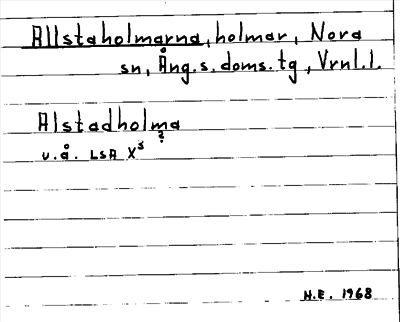 Allstaholmarna, holmar, Nora
sn, Ång.s. doms.tg, Vrnl.l.
Alstadholma
?
u.å. LSA X³
H.E. 1968